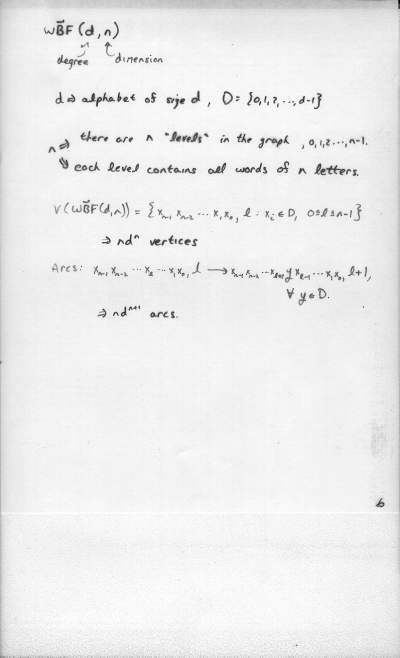 WB⃗F(d,n)
degree dimension
d ⇒ alphabet of size d, D = {0,1,2,...,d-1}
n ⇒ there are n "levels" in the graph, 0,1,2,...,n-1.
⇒ each level contains all words of n letters.
V(WB⃗F(d,n)) = {xₙ₋₁ xₙ₋₂ ... x₁ x₀, l : xᵢ ∈ D, 0≤l≤n-1}
⇒ ndⁿ vertices
Arcs: xₙ₋₁ xₙ₋₂ ... xₗ ... x₁ x₀, l → xₙ₋₁ xₙ₋₂ ... xₗ₊₁ y xₗ₋₁ ... x₁ x₀, l+1,
∀ y ∈ D.
⇒ ndⁿ⁺¹ arcs.
6